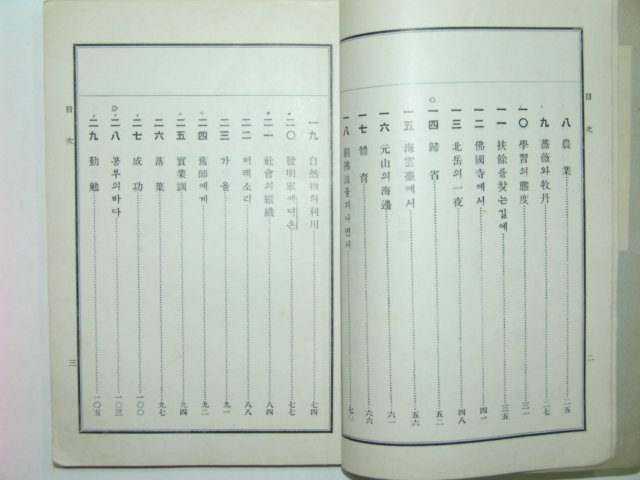 目次
八 農業 二五
九 薔薇와牧丹 二七
一〇 學習의態度 三一
一一 扶餘를찾는길에 三五
一二 佛國寺에서 四一
一三 北岳의一夜 四八
一四 歸省 五二
一五 海雲臺에서 五六
一六 元山의海邊 六一
一七 體育 六六
一八 을지나면서
二
一九 自然物의利用 七四
二〇 發明家에디손 七七
二一 社會의組織 八四
二二 버레소리 八八
二三 가을 九一
二四 舊師에게 九二
二五 實業訓 九四
二六 落葉 九七
二七 成功 一〇〇
二八 공부의바다 一〇三
二九 勤勉 一〇五
目次
三